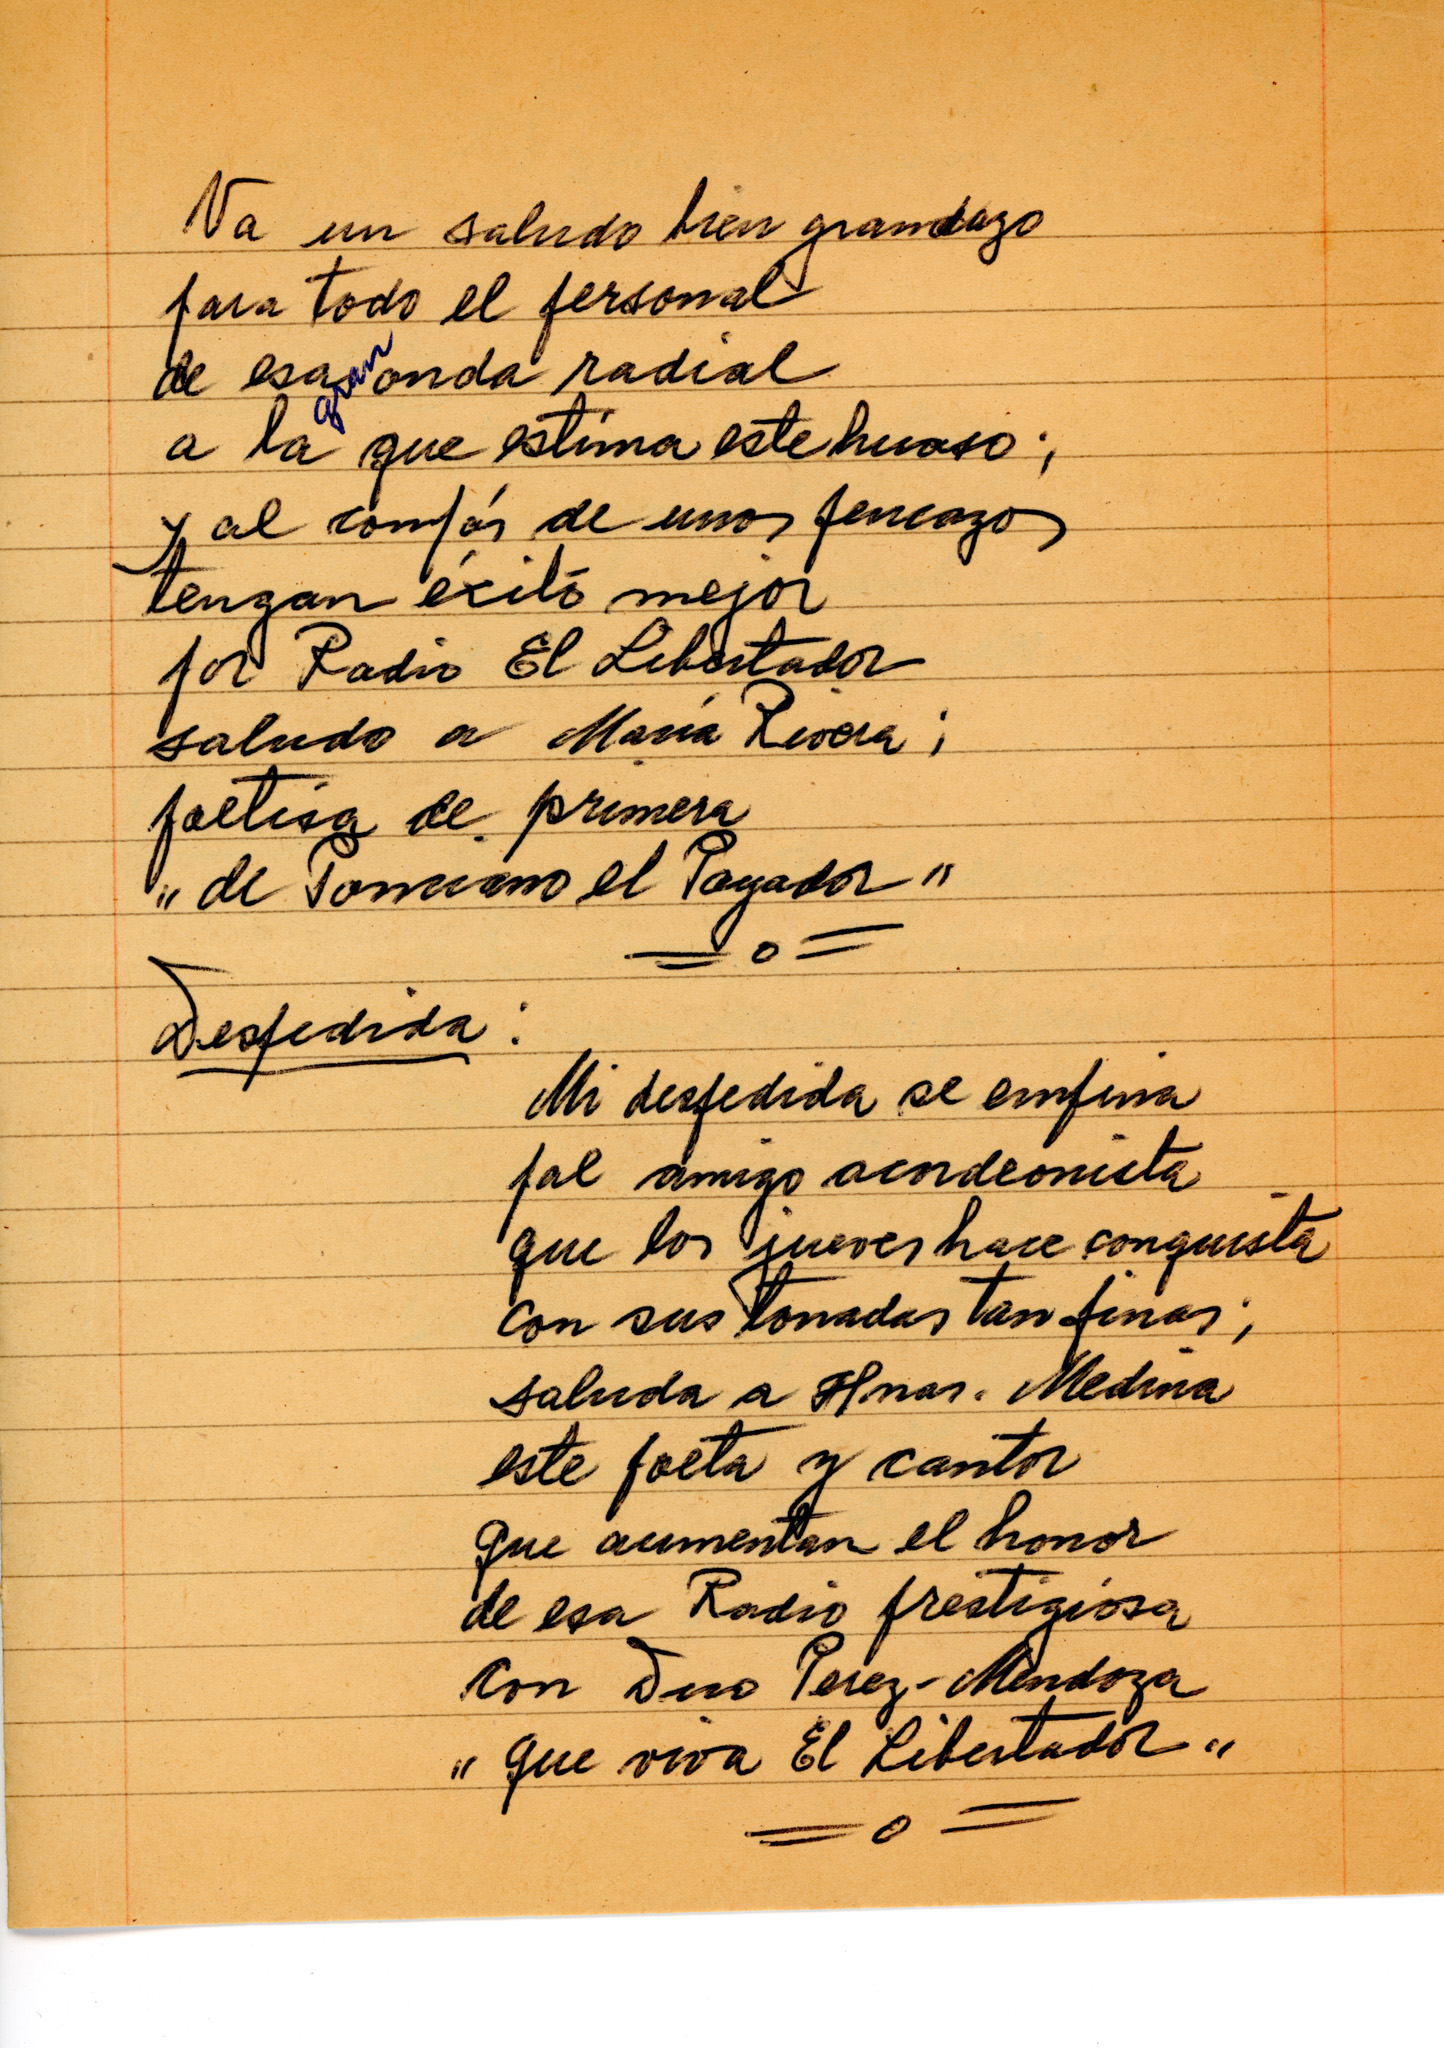 Va un saludo bien grandazo
para todo el personal
de esa gran onda radial
a la que estima este huaso;
y al compás de unos pencazos
tengan éxito mejor
por Radio El Libertador
saludo a María Rivera;
poetisa de primera
"de Ponciano el Payador"
Despedida:
Mi despedida se empina
pal amigo acordeonista
que los jueves hace conquista
con sus tonadas tan finas;
saluda a Hnas. Medina
este poeta y cantor
que aumentan el honor
de esa Radio prestigiosa
con Duo Perez-Mendoza
"que viva El Libertador"